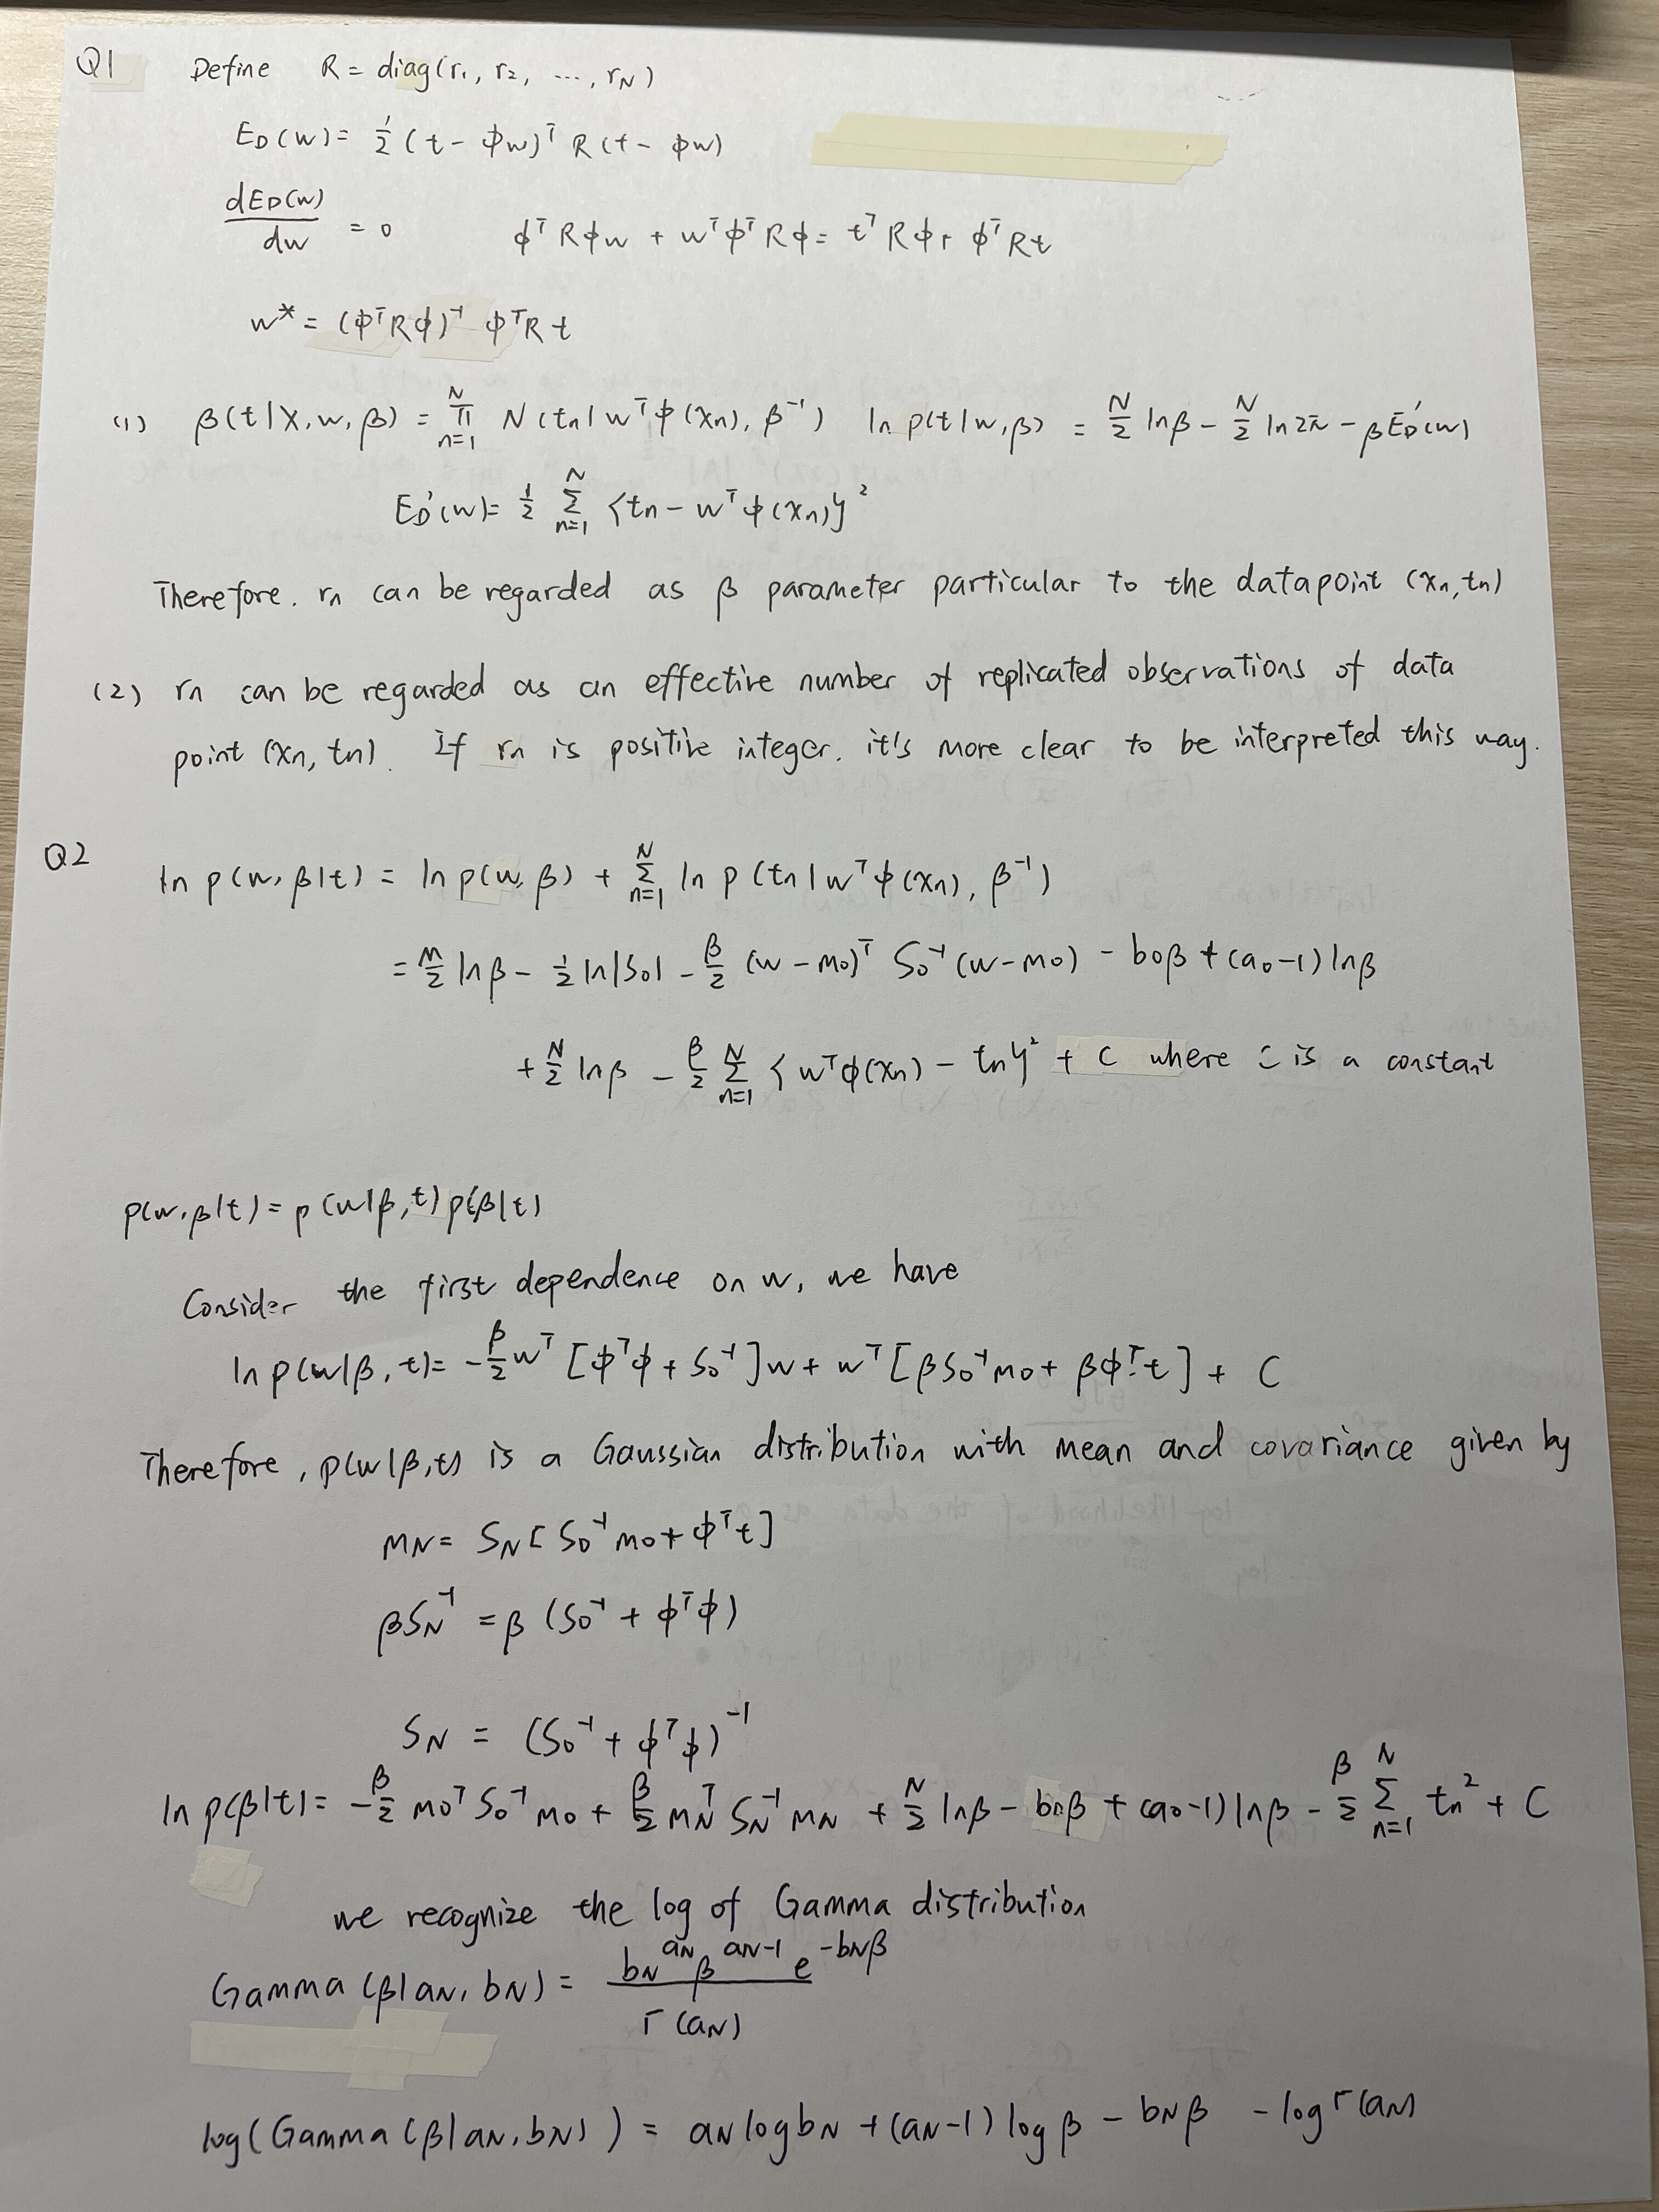 Q1 Define R = diag(r₁, r₂, ..., r_N)
E_D(w) = 1/2 (t - ϕw)ᵀ R (t - ϕw)
dE_D(w)/dw = 0 ϕᵀRϕw + wᵀϕᵀRϕ = tᵀRϕ + ϕᵀRt
w* = (ϕᵀRϕ)⁻¹ ϕᵀRt
(1) β(t|X, w, β) = ∏_{n=1}^{N} N(t_n|wᵀϕ(x_n), β⁻¹) ln p(t|w, β) = N/2 lnβ - N/2 ln2π - βE_D'(w)
E_D'(w) = 1/2 ∑_{n=1}^{N} {t_n - wᵀϕ(x_n)}²
Therefore. r_n can be regarded as β parameter particular to the datapoint (x_n, t_n)
(2) r_n can be regarded as an effective number of replicated observations of data
point (x_n, t_n). If r_n is positive integer. it's more clear to be interpreted this way.
Q2 ln p(w, β|t) = ln p(w, β) + ∑_{n=1}^{N} ln p(t_n|wᵀϕ(x_n), β⁻¹)
= M/2 lnβ - 1/2 ln|S₀| - β/2 (w - m₀)ᵀ S₀⁻¹ (w - m₀) - b₀β + (a₀-1) lnβ
+ N/2 lnβ - β/2 ∑_{n=1}^{N} {wᵀϕ(x_n) - t_n}² + C where C is a constant
p(w, β|t) = p(w|β, t) p(β|t)
Consider the first dependence on w, we have
ln p(w|β, t) = -β/2 wᵀ [ϕᵀϕ + S₀⁻¹] w + wᵀ [βS₀⁻¹m₀ + βϕᵀt] + C
Therefore, p(w|β, t) is a Gaussian distribution with mean and covariance given by
m_N = S_N [S₀⁻¹m₀ + ϕᵀt]
βS_N⁻¹ = β (S₀⁻¹ + ϕᵀϕ)
S_N = (S₀⁻¹ + ϕᵀϕ)⁻¹
ln p(β|t) = -β/2 m₀ᵀS₀⁻¹m₀ + β/2 m_NᵀS_N⁻¹m_N + N/2 lnβ - b₀β + (a₀-1) lnβ - β/2 ∑_{n=1}^{N} t_n² + C
we recognize the log of Gamma distribution
Gamma(β|a_N, b_N) = b_N^{a_N} β^{a_N-1} e^{-b_Nβ} / Γ(a_N)
log(Gamma(β|a_N, b_N)) = a_N log b_N + (a_N-1) log β - b_Nβ - log Γ(a_N)